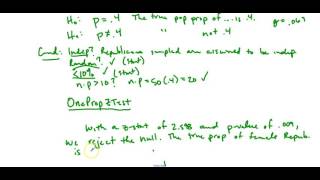 Ho: p = .4 The true pop prop of ... is .4 
Ha: p ≠ .4 " " not .4
Cond: Indep? Republicans sampled are assumed to be indep.
Random? ✓ (Stat)
≤10% ✓ (stat)
n·p > 10? n·p = 50(.4) = 20 ✓
OnePropZTest
With a z-stat of 2.598 and pvalue of .009,
we reject the null. The true prop of female Repub.
is